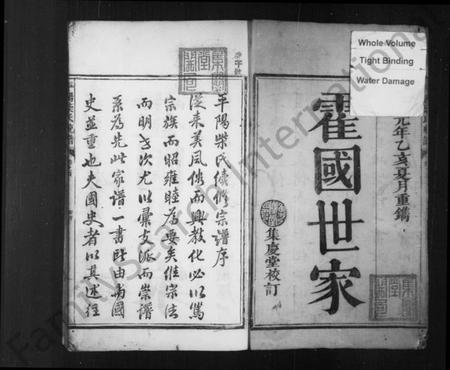 Whole Volume
Tight Binding
Water Damage
元年乙亥夏月重鐫
霍國世家
集慶堂校訂
平陽柴氏續修宗譜序
從来美風俗而興教化必以篤
宗族而昭雍睦為要矣維宗法
而明世次尤以彙支派而崇譜
系為先此家譜一書所由与國
史並重也夫國史者以其述往
FamilySearch International